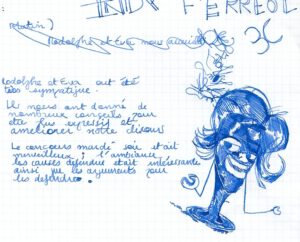 F'ERREOL
Rodolphe et Eva nous
Rodolphe et Eva ont été
très sympatique.
Ils nous ont donné de
nombreux conseils pour
être plus expressif et
améliorer notre discours
Le concours mardi soir était
merveilleux ; l'ambiance,
les causes défendue était intéressante
ainsi que les arguments pour
les défendres.